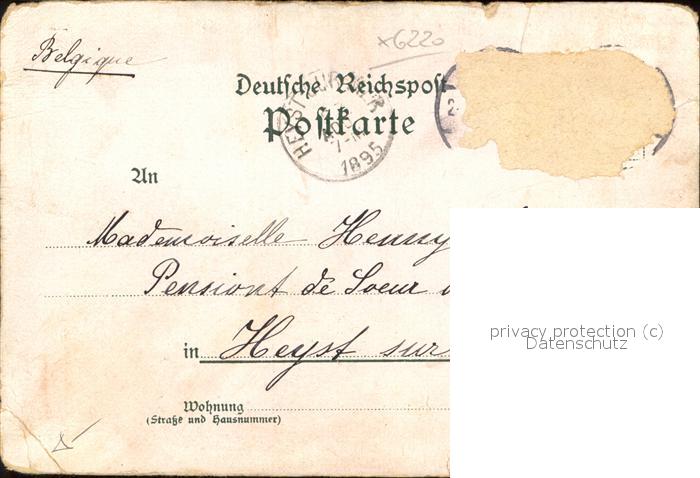 Belgique
x6220
Deutsche Reichspost
Postkarte
HEYST
1895
An
Mademoiselle Henny
Pensiont de Soeur
in Heyst sur
privacy protection (c)
Datenschutz
Wohnung
(Straße und Hausnummer)